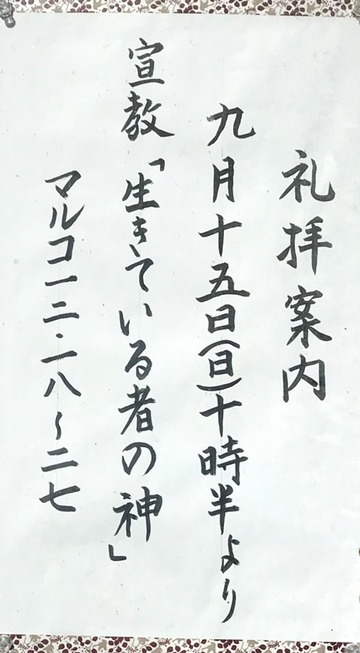 礼拝案内
九月十五日(日)十時半より
宣教「生きている者の神」
マルコ一二・一八〜二七